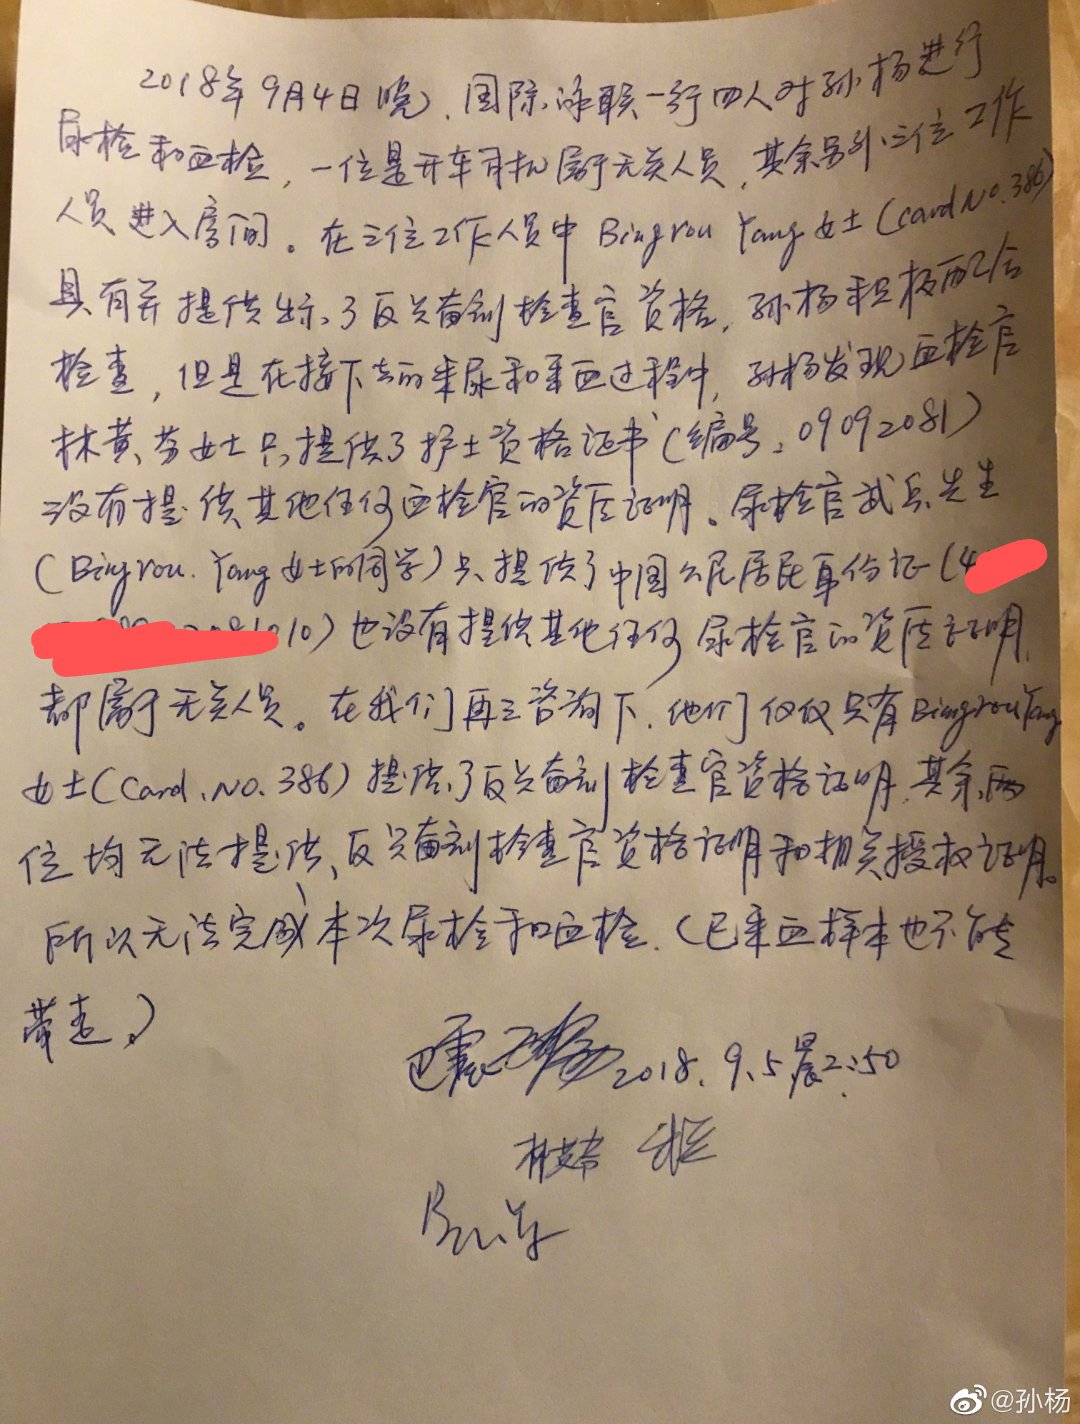 2018年9月4日晚，国际泳联一行四人对孙杨进行
尿检和血检，一位是开车司机属于无关人员，其余另外三位工作
人员进入房间。在三位工作人员中 Bingrou Yang女士(card No.386)
具有并提供出示了反兴奋剂检查官资格，孙杨积极配合
检查，但是在接下去的采尿和采血过程中，孙杨发现血检官
林黄芬女士只提供了护士资格证书(编号：09092081)
没有提供其他任何血检官的资质证明。尿检官武兵先生
(Bingrou.Yang女士的同学)只提供了中国公民居民身份证(4
010)也没有提供其他任何尿检官的资质证明，
都属于无关人员。在我们再三咨询下，他们仅仅只有BingrouYang
女士(Card.No.386)提供了反兴奋剂检查官资格证明，其余两
位均无法提供反兴奋剂检查官资格证明和相关授权证明。
所以无法完成本次尿检和血检.(已采血样本也不能
带走。)
巴震 2018.9.5晨2:50
@孙杨